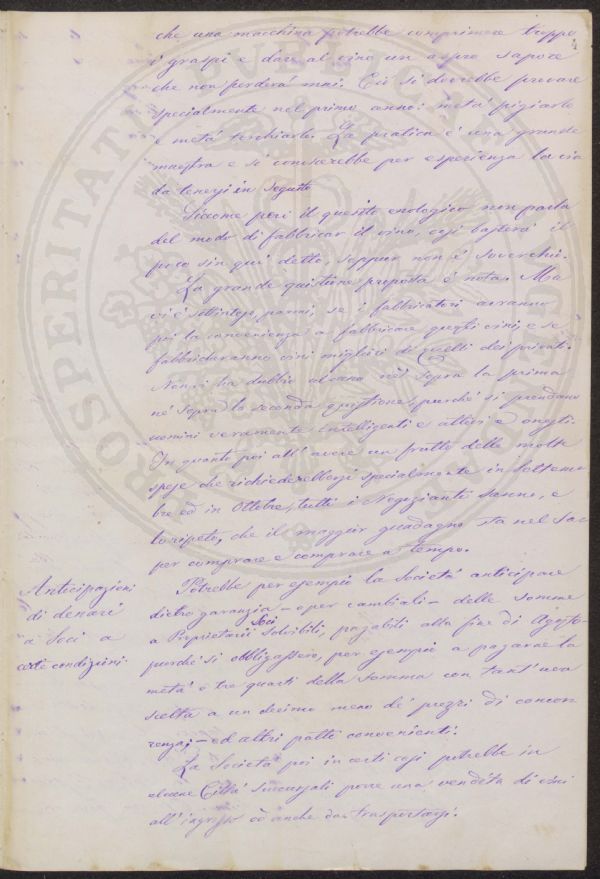 che una macchina potrebbe comprimere troppo
i graspi e dare al vino un aspro sapore
che non perderà mai. Ciò si dovrebbe provare
specialmente nel primo anno: metà pigiarlo
e metà torchiarlo. La pratica è una grande
maestra e si conoscerebbe per esperienza la via
da tenersi in seguito
Siccome però il quesito enologico non parla
del modo di fabbricar il vino, così basterà il
poco sin quì detto, seppur non è soverchio.
La grande quistione proposta è nota. Ma
vi è sottinteso, parmi, se i fabbricatori avranno
poi la convenienza a fabbricare quegli vini, e se
fabbricheranno vini migliori di quelli dei privati.
Non vi ha dubbio alcuno nè sopra la prima
nè sopra la seconda quistione, purchè si prendano
uomini veramente intelligenti e attivi e onesti.
In quanto poi all'avere un frutto delle molte
spese che richiederebbersi specialmente in Settem
bre ed in Ottobre, tutti i Negozianti sanno, e
lo ripeto, che il maggior guadagno sta nel
per comprare e comprare a tempo.
Anticipazioni
di denari
a Soci a
certe condizioni.
Potrebbe per esempio la Società anticipare
dietro garanzia – o per cambiali – delle somme
a Proprietarii Soci solvibili, pagabili alla fine di Agosto –
purchè si obbligassero, per esempio a pagarne la
metà o tre quarti della somma con tant'uva
scelta a un decimo meno de' prezzi di concor
renza; – ed altri patti convenienti.
La Società poi in certi casi potrebbe in
alcune Città succursali porre una vendita di vini
all'ingrosso ed anche da trasportarsi.